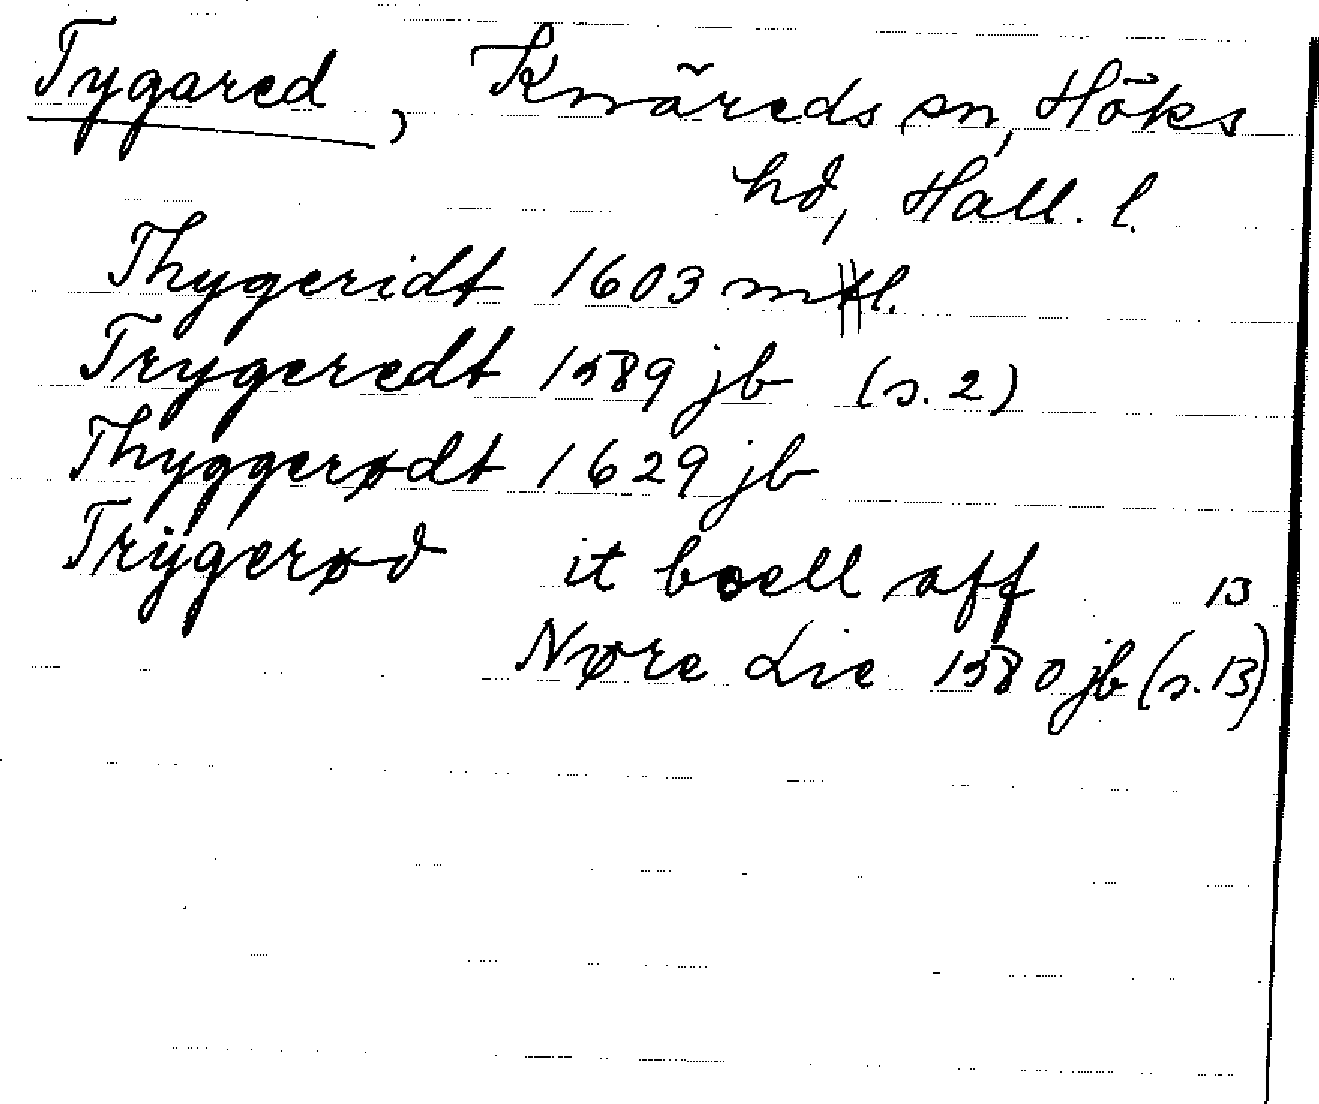 Tygared, Knäreds sn, Höks
hd, Hall. l.
Thygeridt 1603 mtl.
Trygeredt 1589 jb (s. 2)
Thyggerødt 1629 jb
Trÿgerød it boell aff 13
Nøre Lie 1580 jb (s. 13)